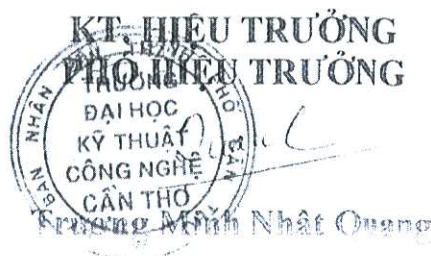 KT. HIỆU TRƯỞNG
PHÓ HIỆU TRƯỞNG
TRƯỜNG
ĐẠI HỌC
KỸ THUẬT
CÔNG NGHỆ
CẦN THƠ
Trương Minh Nhật Quang